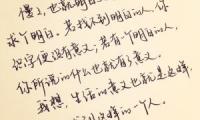 懂了,也就明白
求个明白。若找不到明白的人,你
说字便没有意义;若有一个明白的人,
你所说的什么也就有了意义。
我想,生活的意义也就是这样,
这样的一个人。